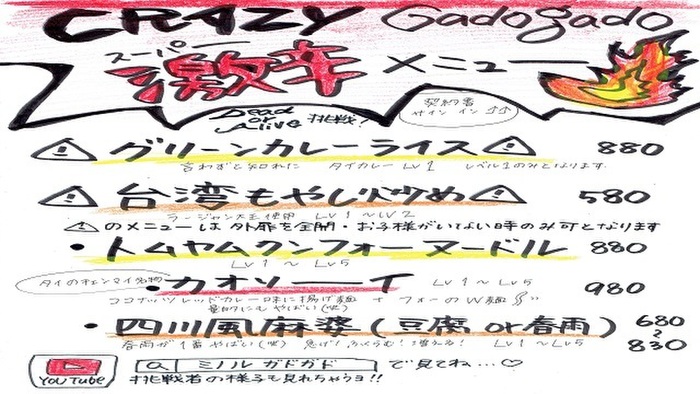 CRAZY Gadogado
スーパー
激辛メニュー
Dead or Alive 挑戦!
契約書
サインイン↑↑
⚠グリーンカレーライス⚠ 880
言わずと知れた タイカレー Lv1 レベル1のみとなります.
⚠台湾もやし炒め⚠ 580
ラージャン大王使用 Lv1～Lv2
⚠のメニューは外扉を全開・お子様がいない時のみ可となります
・トムヤムクンフォーヌードル 880
Lv1～Lv5
タイのチェンマイ名物
・カオソーイ Lv1～Lv5 980
ココナッツレッドカレー味に揚げ麺 + フォーのW麺
量的にもやばい(笑)
・四川風麻婆(豆腐or春雨) 680～830
春雨が1番やばい(笑) 急げ!ふくらむ!増える! Lv1～Lv5
YouTube ミノル ガドガド で見てね…♡
挑戦者の様子も見れちゃうヨ!!